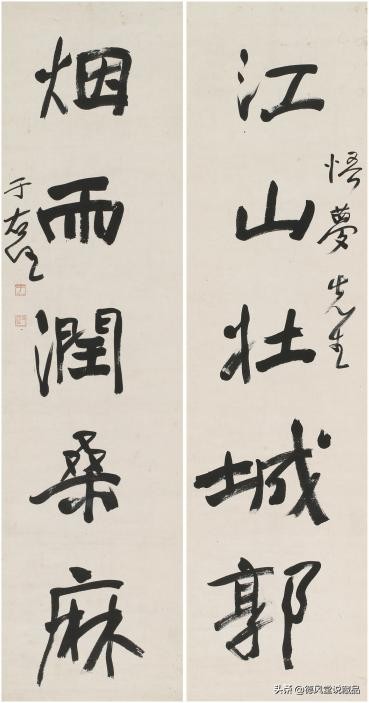 江山壮城郭
悟夢先生
烟雨潤桑麻
于右任
头条@德风堂说藏品